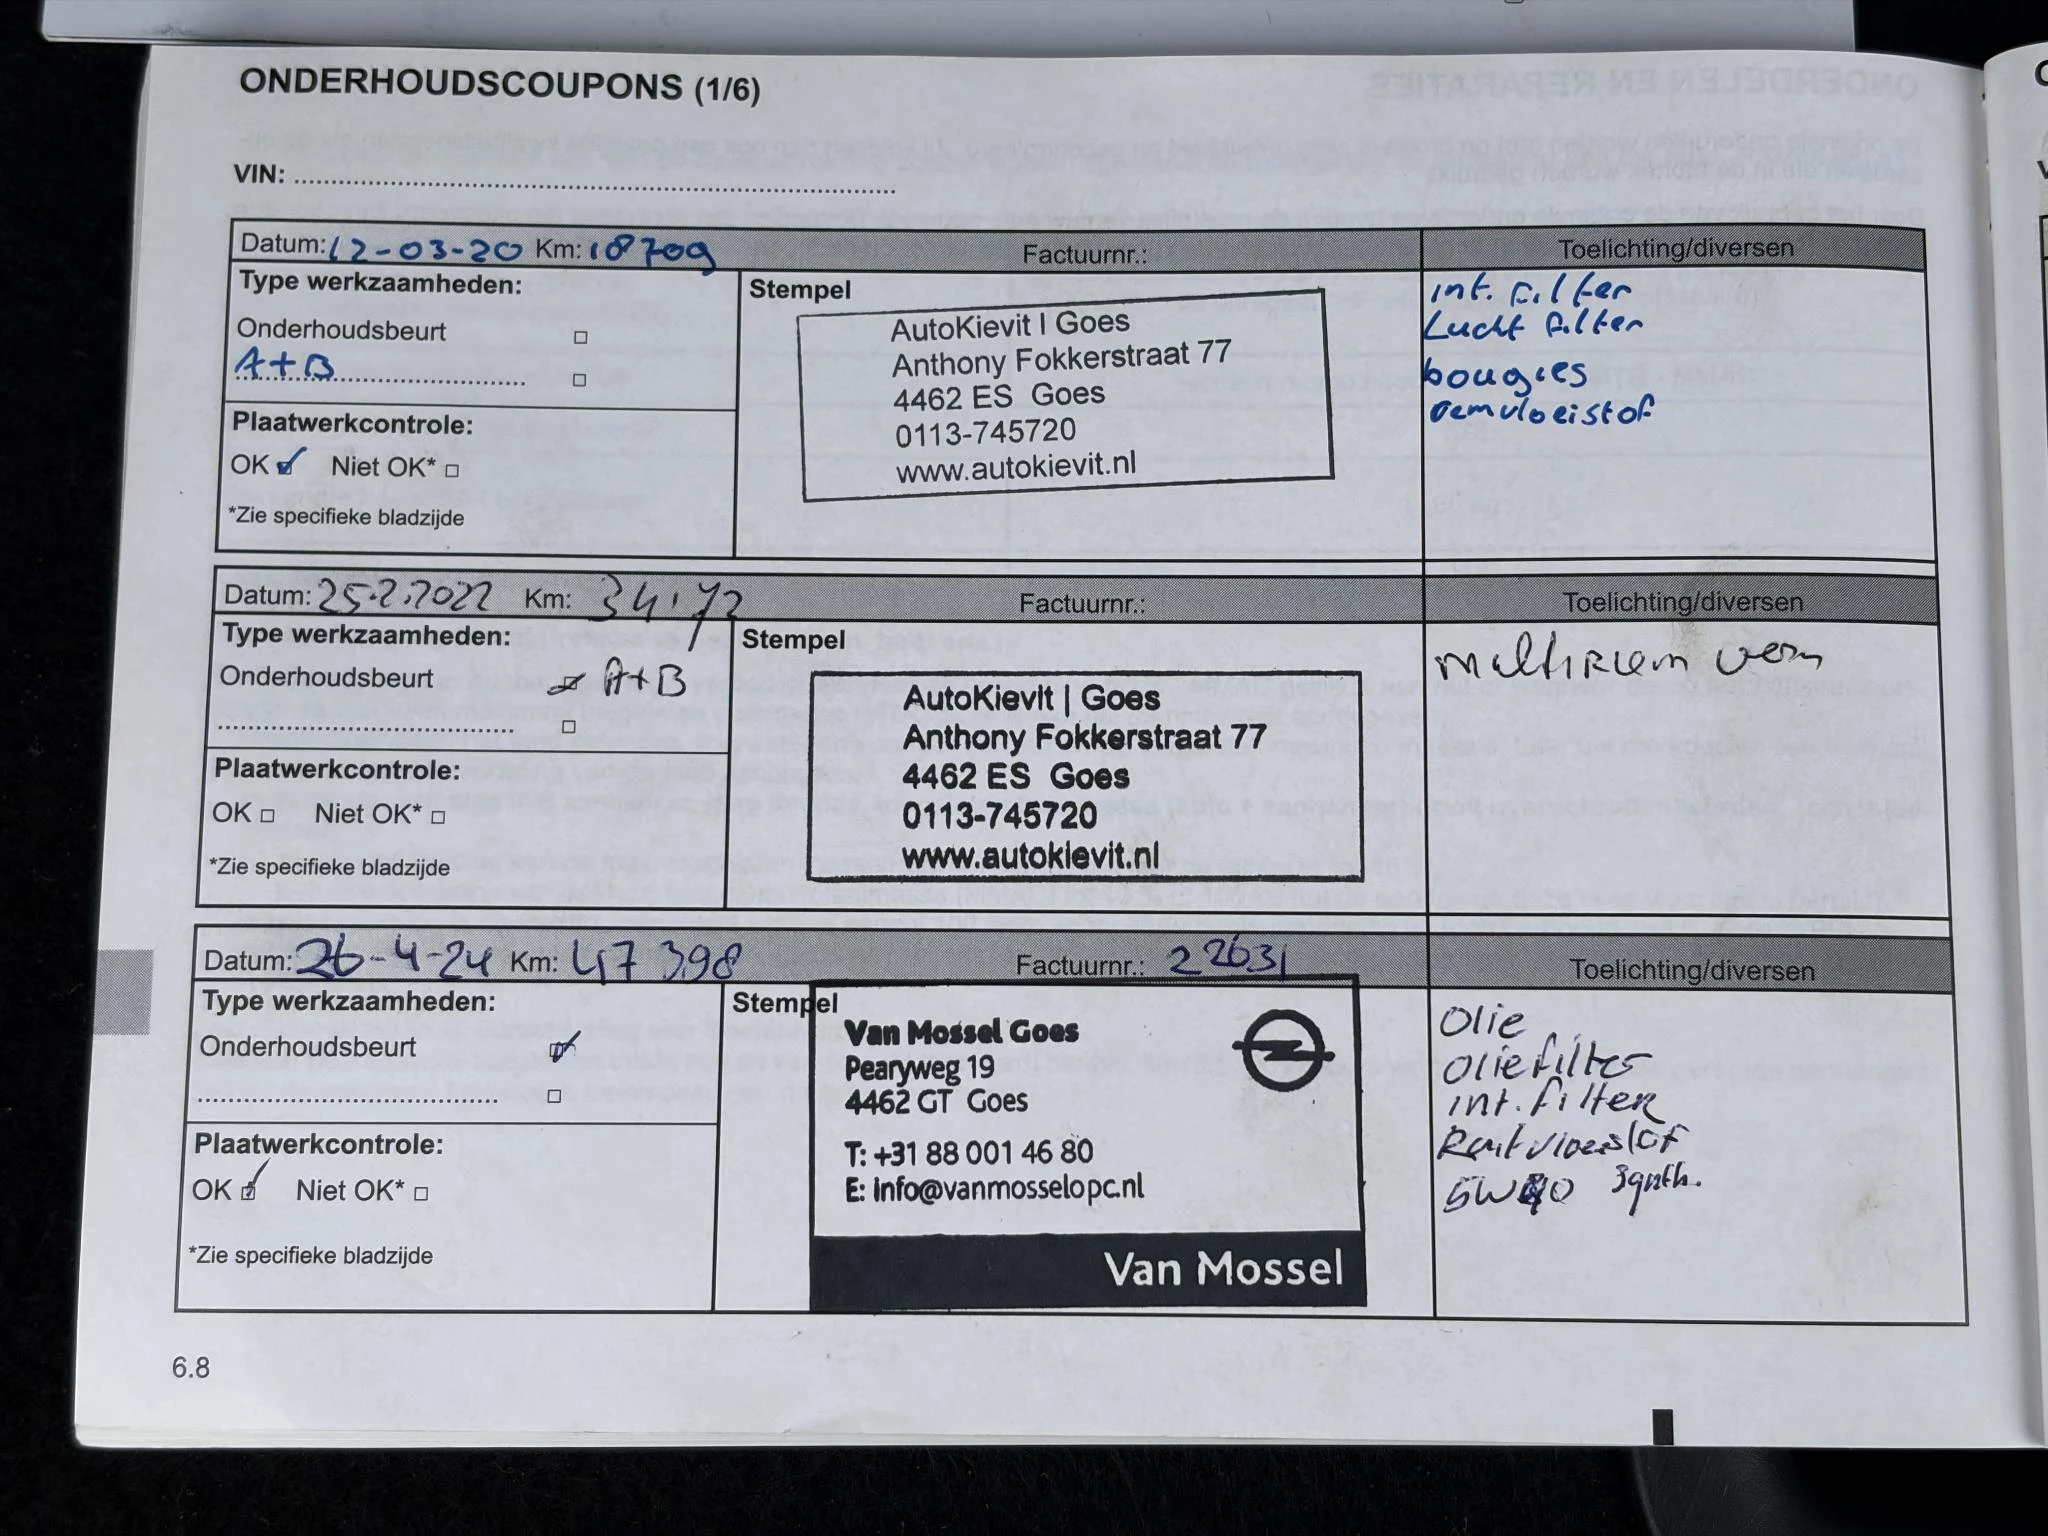 ONDERHOUDSCOUPONS (1/6)
VIN:
Datum: 12-03-20 Km: 18709 Factuurnr.: Toelichting/diversen
Type werkzaamheden:
Onderhoudsbeurt
A+B
Plaatwerkcontrole:
OK Niet OK*
*Zie specifieke bladzijde
Stempel
AutoKievit | Goes
Anthony Fokkerstraat 77
4462 ES Goes
0113-745720
www.autokievit.nl
int. filter
Lucht filter
bougies
remvloeistof
Datum: 25.2.2022 Km: 34172 Factuurnr.: Toelichting/diversen
Type werkzaamheden:
Onderhoudsbeurt A+B
Plaatwerkcontrole:
OK Niet OK*
*Zie specifieke bladzijde
Stempel
AutoKievit | Goes
Anthony Fokkerstraat 77
4462 ES Goes
0113-745720
www.autokievit.nl
multiriem vern
Datum: 26-4-24 Km: 47398 Factuurnr.: 22631 Toelichting/diversen
Type werkzaamheden:
Onderhoudsbeurt
Plaatwerkcontrole:
OK Niet OK*
*Zie specifieke bladzijde
Stempel
Van Mossel Goes
Pearyweg 19
4462 GT Goes
T: +31 88 001 46 80
E: info@vanmosselopc.nl
Van Mossel
Olie
Oliefilter
int. filter
5W40 synth.
6.8